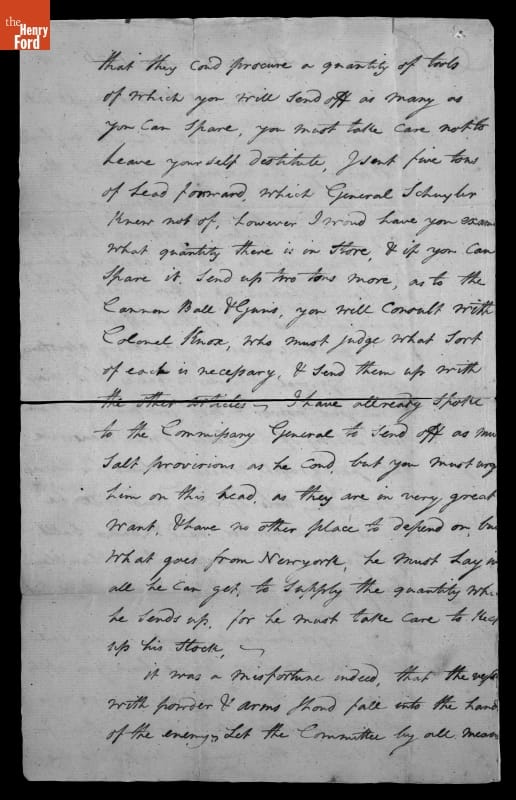 the
Henry
Ford
that they cod procure a quantity of tools
of which you will send off as many as
you Can Spare, you must take care not to
Leave yourself destitute, I sent five tons
of Lead forward, which General Schuyler
Knew not of, however I woud have you exam
what quantity there is in Store, & if you Can
Spare it, Send up two tons more, as to the
Cannon Ball & Guns, you will Consult with
Colonel Knox, who must judge what Sort
of each is necessary, & Send them up with
the other articles — I have allready Spoke
to the Commissary General to Send off as mu
Salt provisions as he Cod, but you must urg
him on this head, as they are in very great
want, & have no other place to depend on, bu
what goes from Newyork, he must Lay in
all he Can get, to Supply the quantity whi
he Sends up, for he must take Care to Kee
up his Stock, —
it was a misfortune indeed, that the
with powder & arms Shoud fall into the hand
of the enemy, Let the Committee by all mean